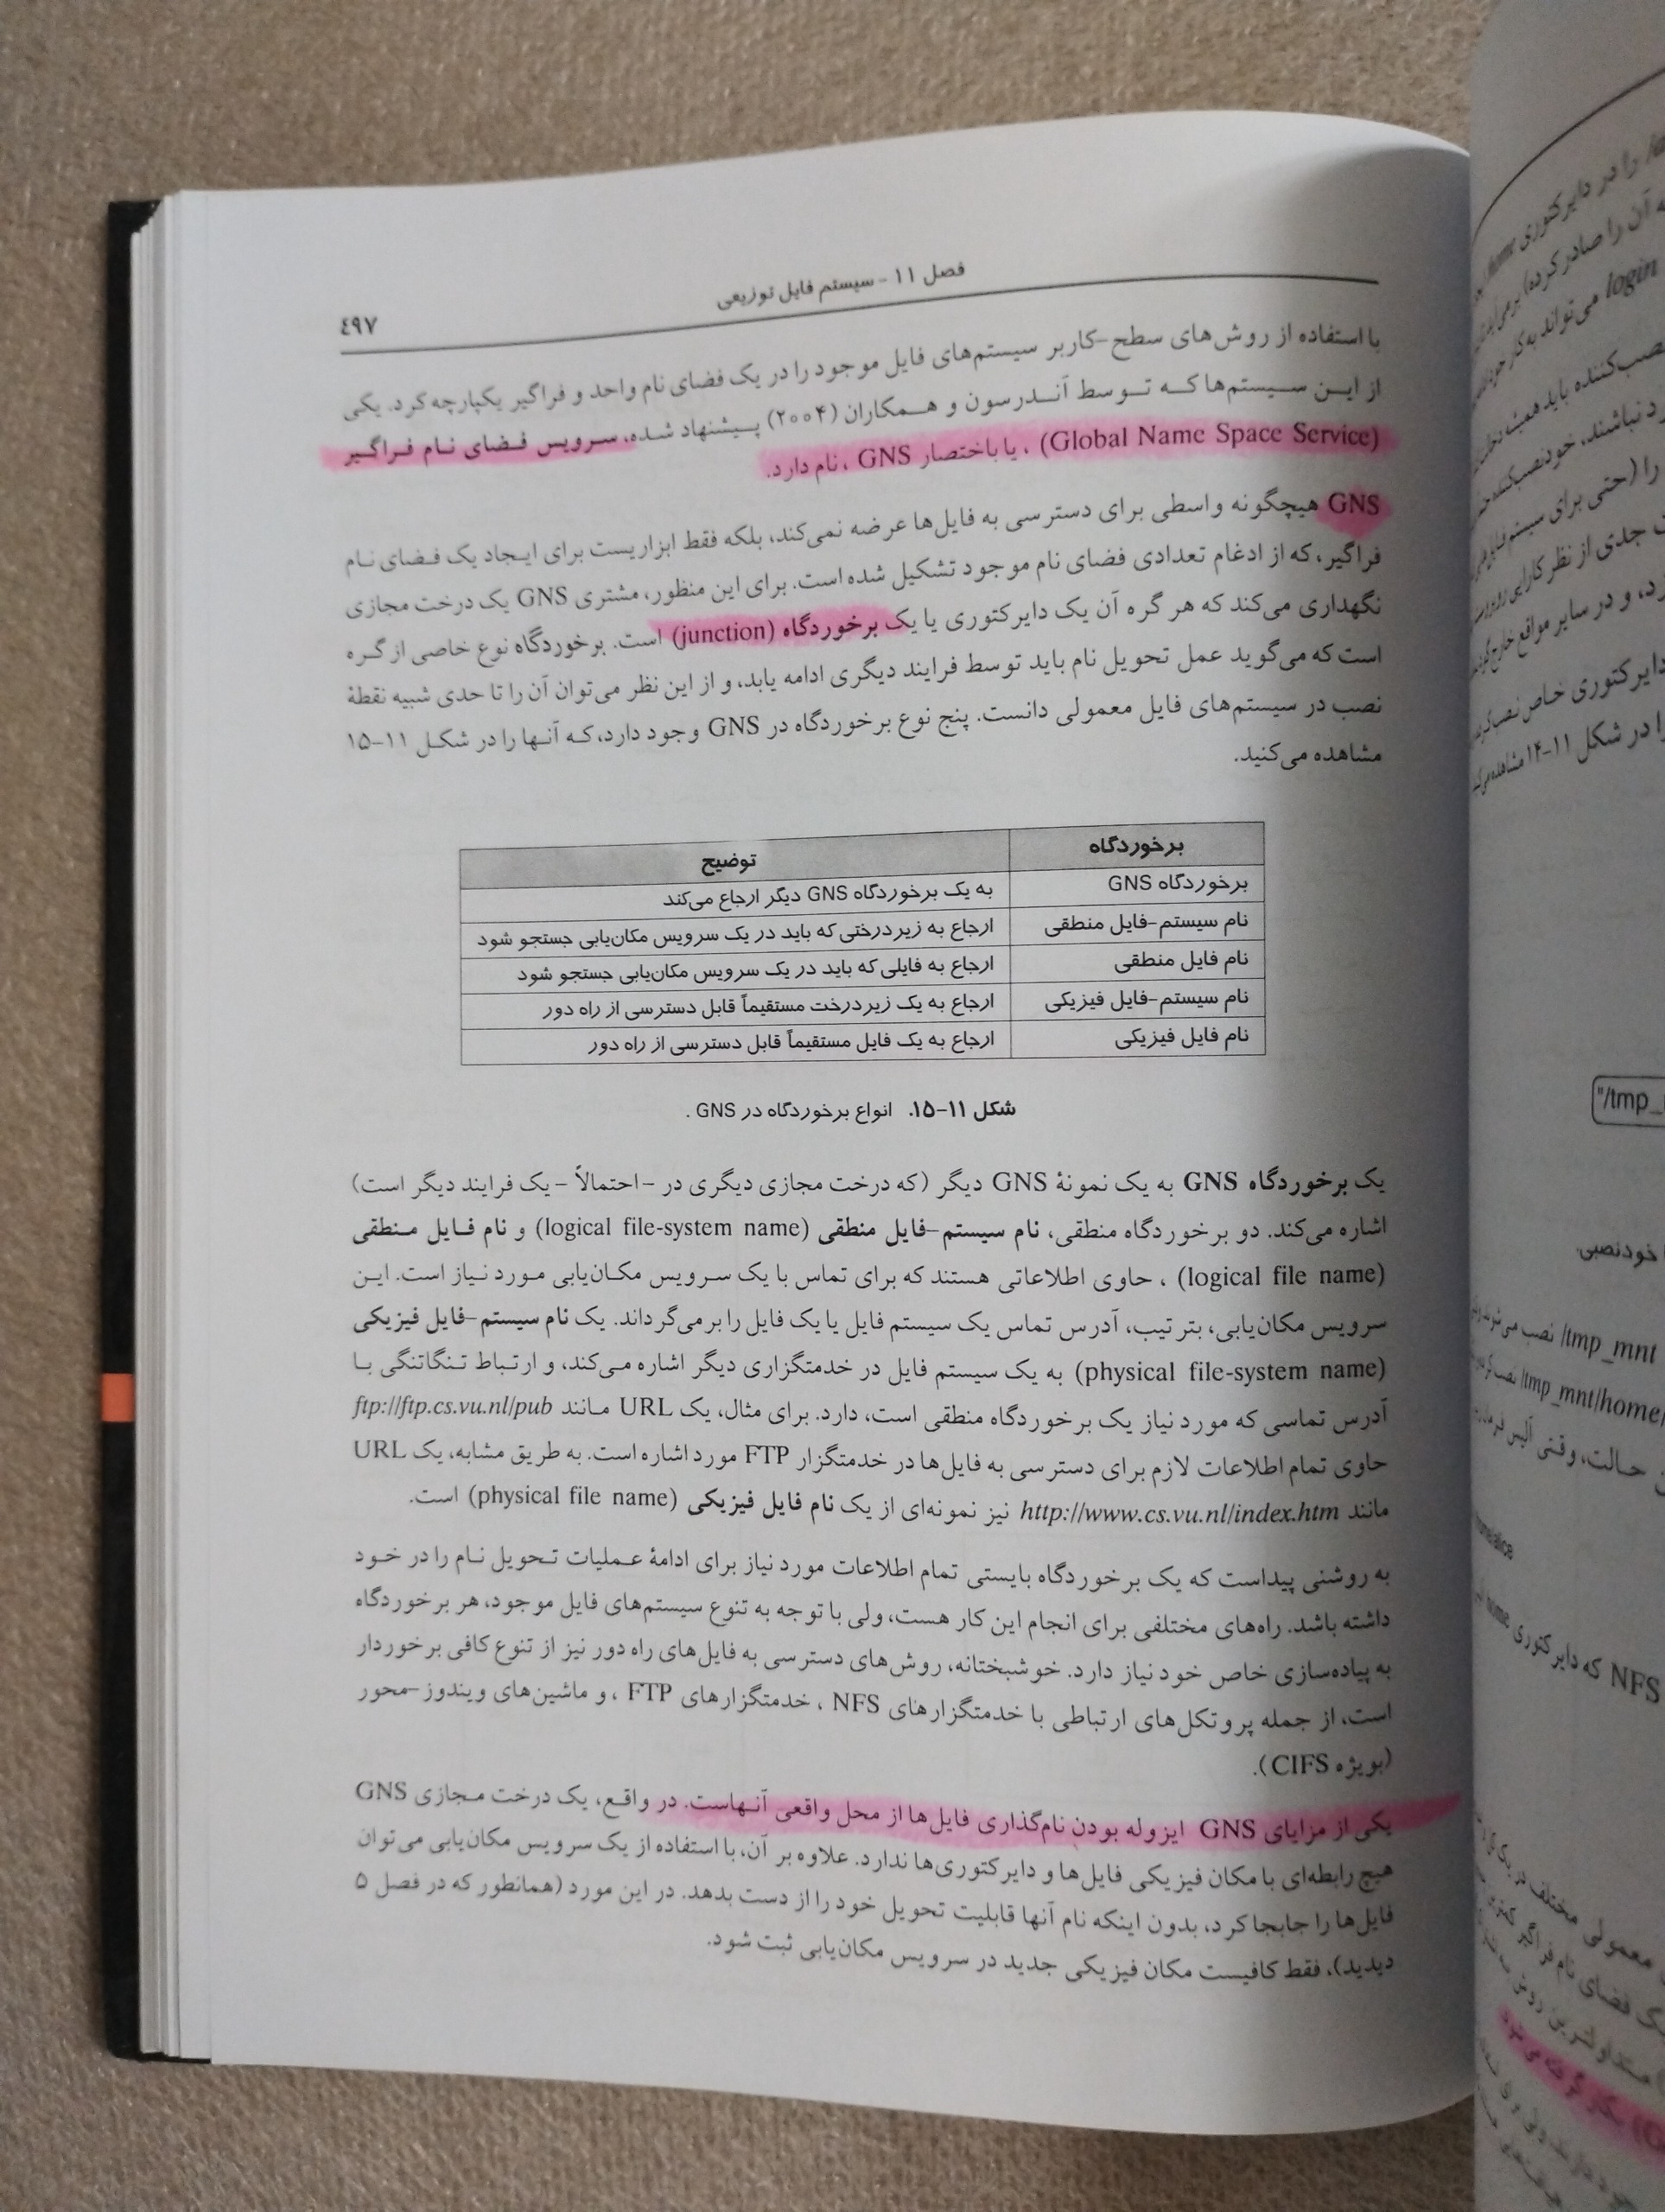 فصل ۱۱ - سیستم فایل توزیعی
۴۹۷
با استفاده از روش‌های سطح-کاربر سیستم‌های فایل موجود را در یک فضای نام واحد و فراگیر یکپارچه کرد. یکی
از این سیستم‌ها که توسط آندرسون و همکاران (۲۰۰۴) پیشنهاد شده، سرویس فضای نام فراگیر
(Global Name Space Service) ، یا باختصار GNS ، نام دارد.
GNS هیچگونه واسطی برای دسترسی به فایل‌ها عرضه نمی‌کند، بلکه فقط ابزاریست برای ایجاد یک فضای نام
فراگیر، که از ادغام تعدادی فضای نام موجود تشکیل شده است. برای این منظور، مشتری GNS یک درخت مجازی
نگهداری می‌کند که هر گره آن یک دایرکتوری یا یک برخوردگاه (junction) است. برخوردگاه نوع خاصی از گره
است که می‌گوید عمل تحویل نام باید توسط فرایند دیگری ادامه یابد، و از این نظر می‌توان آن را تا حدی شبیه نقطهٔ
نصب در سیستم‌های فایل معمولی دانست. پنج نوع برخوردگاه در GNS وجود دارد، که آنها را در شکل ۱۱-۱۵
مشاهده می‌کنید.
برخوردگاه توضیح
برخوردگاه GNS به یک برخوردگاه GNS دیگر ارجاع می‌کند
نام سیستم-فایل منطقی ارجاع به زیردرختی که باید در یک سرویس مکان‌یابی جستجو شود
نام فایل منطقی ارجاع به فایلی که باید در یک سرویس مکان‌یابی جستجو شود
نام سیستم-فایل فیزیکی ارجاع به یک زیردرخت مستقیماً قابل دسترسی از راه دور
نام فایل فیزیکی ارجاع به یک فایل مستقیماً قابل دسترسی از راه دور
شکل ۱۱-۱۵. انواع برخوردگاه در GNS .
یک برخوردگاه GNS به یک نمونهٔ GNS دیگر (که درخت مجازی دیگری در - احتمالاً - یک فرایند دیگر است)
اشاره می‌کند. دو برخوردگاه منطقی، نام سیستم-فایل منطقی (logical file-system name) و نام فایل منطقی
(logical file name) ، حاوی اطلاعاتی هستند که برای تماس با یک سرویس مکان‌یابی مورد نیاز است. این
سرویس مکان‌یابی، بترتیب، آدرس تماس یک سیستم فایل یا یک فایل را برمی‌گرداند. یک نام سیستم-فایل فیزیکی
(physical file-system name) به یک سیستم فایل در خدمتگزاری دیگر اشاره می‌کند، و ارتباط تنگاتنگی با
آدرس تماسی که مورد نیاز یک برخوردگاه منطقی است، دارد. برای مثال، یک URL مانند ftp://ftp.cs.vu.nl/pub
حاوی تمام اطلاعات لازم برای دسترسی به فایل‌ها در خدمتگزار FTP مورد اشاره است. به طریق مشابه، یک URL
مانند http://www.cs.vu.nl/index.htm نیز نمونه‌ای از یک نام فایل فیزیکی (physical file name) است.
به روشنی پیداست که یک برخوردگاه بایستی تمام اطلاعات مورد نیاز برای ادامهٔ عملیات تحویل نام را در خود
داشته باشد. راه‌های مختلفی برای انجام این کار هست، ولی با توجه به تنوع سیستم‌های فایل موجود، هر برخوردگاه
به پیاده‌سازی خاص خود نیاز دارد. خوشبختانه، روش‌های دسترسی به فایل‌های راه دور نیز از تنوع کافی برخوردار
است، از جمله پروتکل‌های ارتباطی با خدمتگزارهای NFS ، خدمتگزارهای FTP ، و ماشین‌های ویندوز-محور
(بویژه CIFS).
یکی از مزایای GNS ایزوله بودن نام‌گذاری فایل‌ها از محل واقعی آنهاست. در واقع، یک درخت مجازی GNS
هیچ رابطه‌ای با مکان فیزیکی فایل‌ها و دایرکتوری‌ها ندارد. علاوه بر آن، با استفاده از یک سرویس مکان‌یابی می‌توان
فایل‌ها را جابجا کرد، بدون اینکه نام آنها قابلیت تحویل خود را از دست بدهد. در این مورد (همانطور که در فصل ۵
دیدید)، فقط کافیست مکان فیزیکی جدید در سرویس مکان‌یابی ثبت شود.
را در دایرکتوری home
آن را صادر کرده) برمی‌آید
login می‌تواند به کار خود
نصب‌کننده باید همیشه
را (حتی برای سیستم
جدی از نظر کارایی
و در سایر مواقع خارج
دایرکتوری خاص نصب
را در شکل ۱۱-۱۴ مشاهده
"/tmp_
خودنصبی.
/tmp_mnt نصب می‌شوند
/tmp_mnt/home/
حالت، وقتی آلیس
NFS که دایرکتوری home
معمولی مختلف در یک
یک فضای نام فراگیر
متداولترین روش
بکار گرفته می‌شود